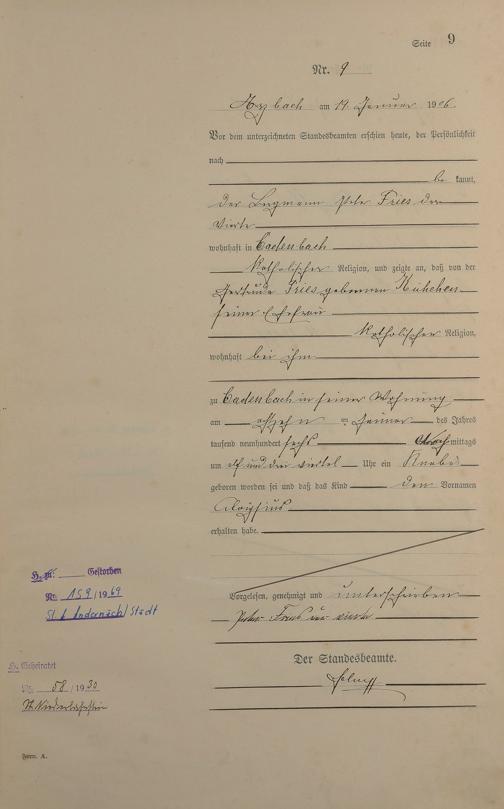 Seite 9
Nr. 9
Arzbach am 19 Januar 1906.
Vor dem unterzeichneten Standesbeamten erschien heute, der Persönlichkeit
nach
be kannt,
der Bergmann Peter Fries der
Vierte
wohnhaft in Cadenbach
Katholischer Religion, und zeigte an, daß von der
Gertrude Fries geborenen
seiner Ehefrau
Katholischer Religion,
wohnhaft bei ihm
zu Cadenbach in seiner Wohnung
am Januar des Jahres
tausend neunhundert sechs mittags
um elf und drei viertel Uhr ein Knabe
geboren worden sei und daß das Kind den Vornamen
Aloysius
erhalten habe.
Vorgelesen, genehmigt und unterschrieben
Peter Fries der vierte
Der Standesbeamte.
H. Gestorben
Nr. 159/1969
St. A. Andernach/Stadt
H. Geheiratet
Nr. 58/1930
Form. A.